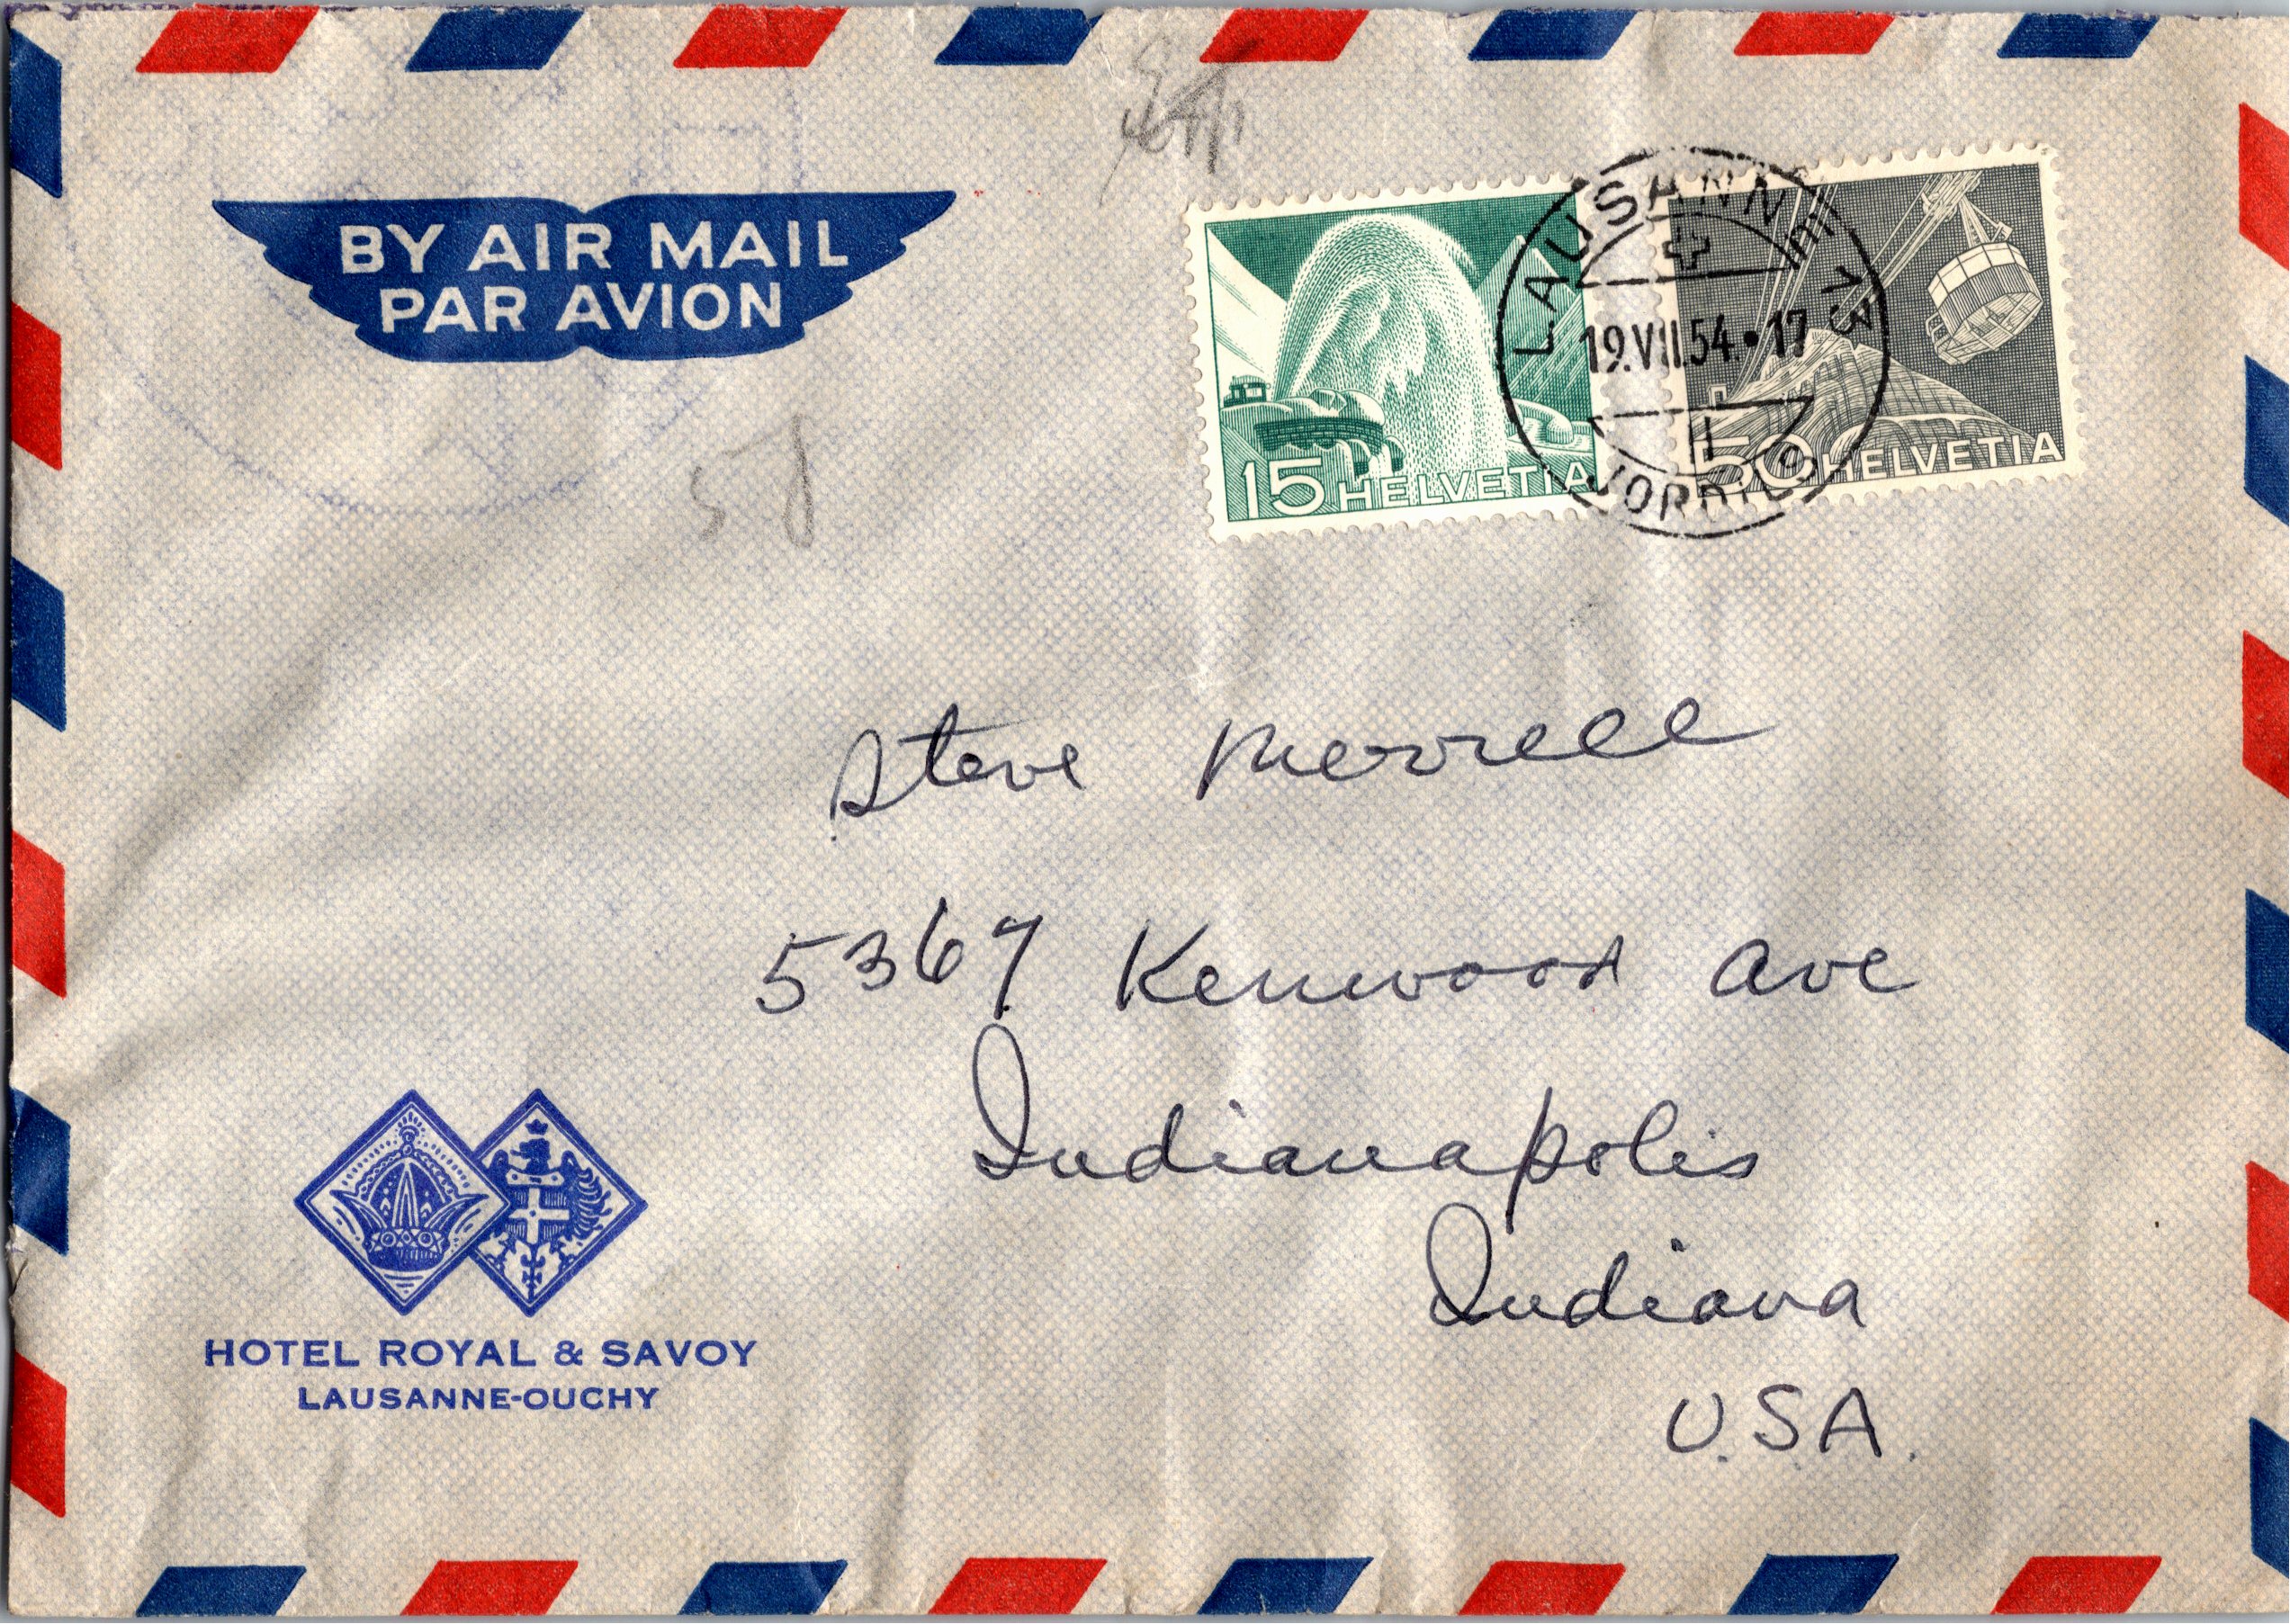 BY AIR MAIL
PAR AVION
LAUSANNE
19.VII.54.•17
JORDILS
15 HELVETIA
50 HELVETIA
Steve Merrell
5367 Kenwood Ave
Indianapolis
Indiana
U.S.A.
HOTEL ROYAL & SAVOY
LAUSANNE-OUCHY